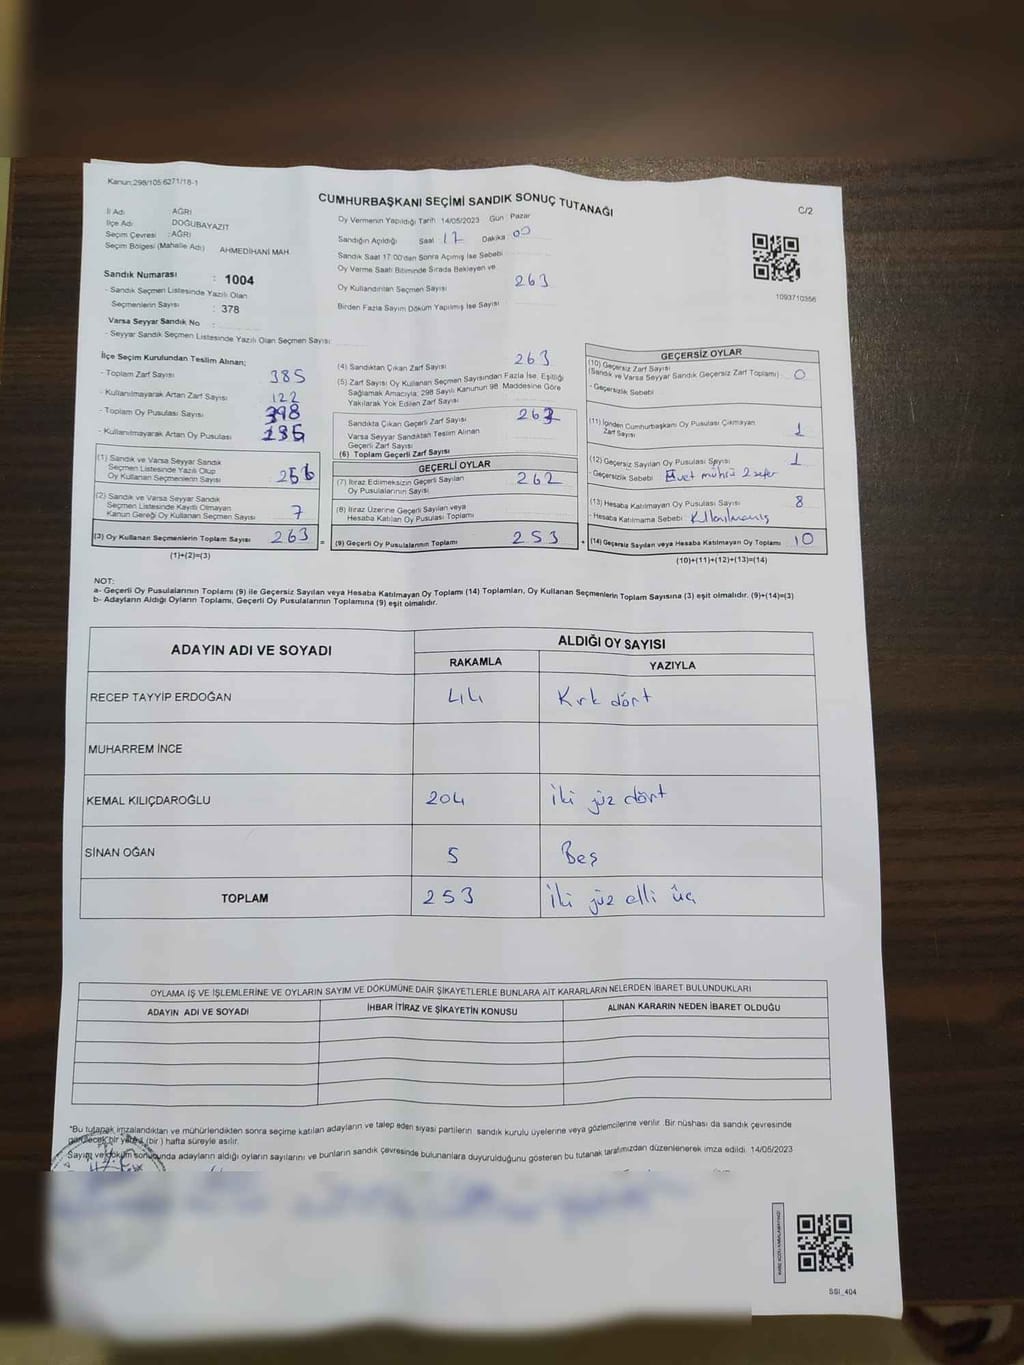 Kanun:298/105 6271/18-1
CUMHURBAŞKANI SEÇİMİ SANDIK SONUÇ TUTANAĞI
C/2
İl Adı : AĞRI
İlçe Adı : DOĞUBAYAZIT
Seçim Çevresi : AĞRI
Seçim Bölgesi (Mahalle Adı) AHMEDİHANİ MAH.
Sandık Numarası : 1004
- Sandık Seçmen Listesinde Yazılı Olan
Seçmenlerin Sayısı : 378
Varsa Seyyar Sandık No :
- Seyyar Sandık Seçmen Listesinde Yazılı Olan Seçmen Sayısı:
Oy Vermenin Yapıldığı Tarih 14/05/2023 Gün : Pazar
Sandığın Açıldığı Saat 17 Dakika 00
Sandık Saat 17:00'den Sonra Açılmış İse Sebebi
Oy Verme Saati Bitiminde Sırada Bekleyen ve
Oy Kullandırılan Seçmen Sayısı 263
Birden Fazla Sayım Döküm Yapılmış İse Sayısı
1093710356
İlçe Seçim Kurulundan Teslim Alınan;
- Toplam Zarf Sayısı 385
- Kullanılmayarak Artan Zarf Sayısı 122
- Toplam Oy Pusulası Sayısı 398
- Kullanılmayarak Artan Oy Pusulası
(1) Sandık ve Varsa Seyyar Sandık
Seçmen Listesinde Yazılı Olup
Oy Kullanan Seçmenlerin Sayısı 256
(2) Sandık ve Varsa Seyyar Sandık
Seçmen Listesinde Kayıtlı Olmayan
Kanun Gereği Oy Kullanan Seçmen Sayısı 7
(3) Oy Kullanan Seçmenlerin Toplam Sayısı 263 =
(1)+(2)=(3)
(4) Sandıktan Çıkan Zarf Sayısı 263
(5) Zarf Sayısı Oy Kullanan Seçmen Sayısından Fazla İse, Eşitliği
Sağlamak Amacıyla; 298 Sayılı Kanunun 98. Maddesine Göre
Yakılarak Yok Edilen Zarf Sayısı
Sandıkta Çıkan Geçerli Zarf Sayısı
Varsa Seyyar Sandıktan Teslim Alınan
Geçerli Zarf Sayısı
(6) Toplam Geçerli Zarf Sayısı
GEÇERLİ OYLAR
(7) İtiraz Edilmeksizin Geçerli Sayılan
Oy Pusulalarının Sayısı 262
(8) İtiraz Üzerine Geçerli Sayılan veya
Hesaba Katılan Oy Pusulası Toplamı
(9) Geçerli Oy Pusulalarının Toplamı 253 +
GEÇERSİZ OYLAR
(10) Geçersiz Zarf Sayısı
(Sandık ve Varsa Seyyar Sandık Geçersiz Zarf Toplamı) 0
- Geçersizlik Sebebi
(11) İçinden Cumhurbaşkanı Oy Pusulası Çıkmayan
Zarf Sayısı 1
(12) Geçersiz Sayılan Oy Pusulası Sayısı 1
- Geçersizlik Sebebi Evet mührü 2 sefer
(13) Hesaba Katılmayan Oy Pusulası Sayısı 8
- Hesaba Katılmama Sebebi Kullanılmamış
(14) Geçersiz Sayılan veya Hesaba Katılmayan Oy Toplamı 10
(10)+(11)+(12)+(13)=(14)
NOT:
a- Geçerli Oy Pusulalarının Toplamı (9) ile Geçersiz Sayılan veya Hesaba Katılmayan Oy Toplamı (14) Toplamları, Oy Kullanan Seçmenlerin Toplam Sayısına (3) eşit olmalıdır. (9)+(14)=(3)
b- Adayların Aldığı Oyların Toplamı, Geçerli Oy Pusulalarının Toplamına (9) eşit olmalıdır.
ADAYIN ADI VE SOYADI ALDIĞI OY SAYISI
RAKAMLA YAZIYLA
RECEP TAYYİP ERDOĞAN 44 Kırk dört
MUHARREM İNCE
KEMAL KILIÇDAROĞLU 204 İki yüz dört
SİNAN OĞAN 5 Beş
TOPLAM 253 İki yüz elli üç
OYLAMA İŞ VE İŞLEMLERİNE VE OYLARIN SAYIM VE DÖKÜMÜNE DAİR ŞİKAYETLERLE BUNLARA AİT KARARLARIN NELERDEN İBARET BULUNDUKLARI
ADAYIN ADI VE SOYADI İHBAR İTİRAZ VE ŞİKAYETİN KONUSU ALINAN KARARIN NEDEN İBARET OLDUĞU
"Bu tutanak imzalandıktan ve mühürlendikten sonra seçime katılan adayların ve talep eden siyasi partilerin sandık kurulu üyelerine veya gözlemcilerine verilir. Bir nüshası da sandık çevresinde
görülecek bir yere (bir) hafta süreyle asılır.
Sayım ve döküm sonucunda adayların aldığı oyların sayılarını ve bunların sandık çevresinde bulunanlara duyurulduğunu gösteren bu tutanak tarafımızdan düzenlenerek imza edildi. 14/05/2023
SSİ_404